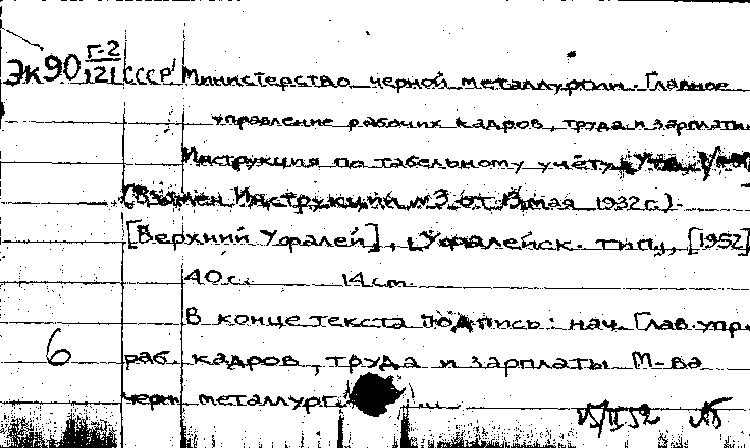 Эк90 Г-2/121 СССР. Министерство черной металлургии. Главное
управление рабочих кадров, труда и зарплаты.
Инструкция по табельному учёту
(Взамен Инструкции №3 от 13 мая 1932 г.).
[Верхний Уфалей], Уфалейск. тип., [1952]
40 с. 14 см.
В конце текста подпись: нач. Глав. упр.
6 раб. кадров, труда и зарплаты М-ва
черн металлург.